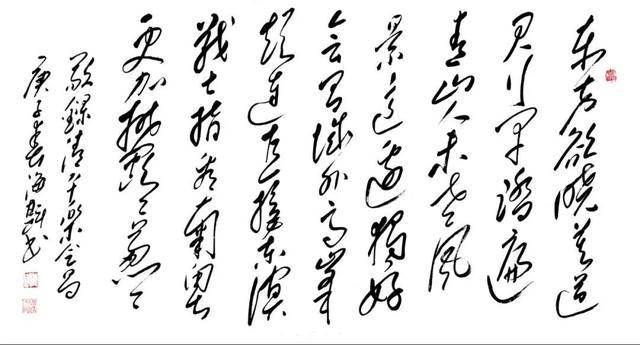 东方欲晓莫道
君行早踏遍
青山人未老风
景这边独好
会昌城外高峰
颠连直接东溟
战士指看南粤
更加郁郁葱葱
敬录清平乐会昌
庚子春海书